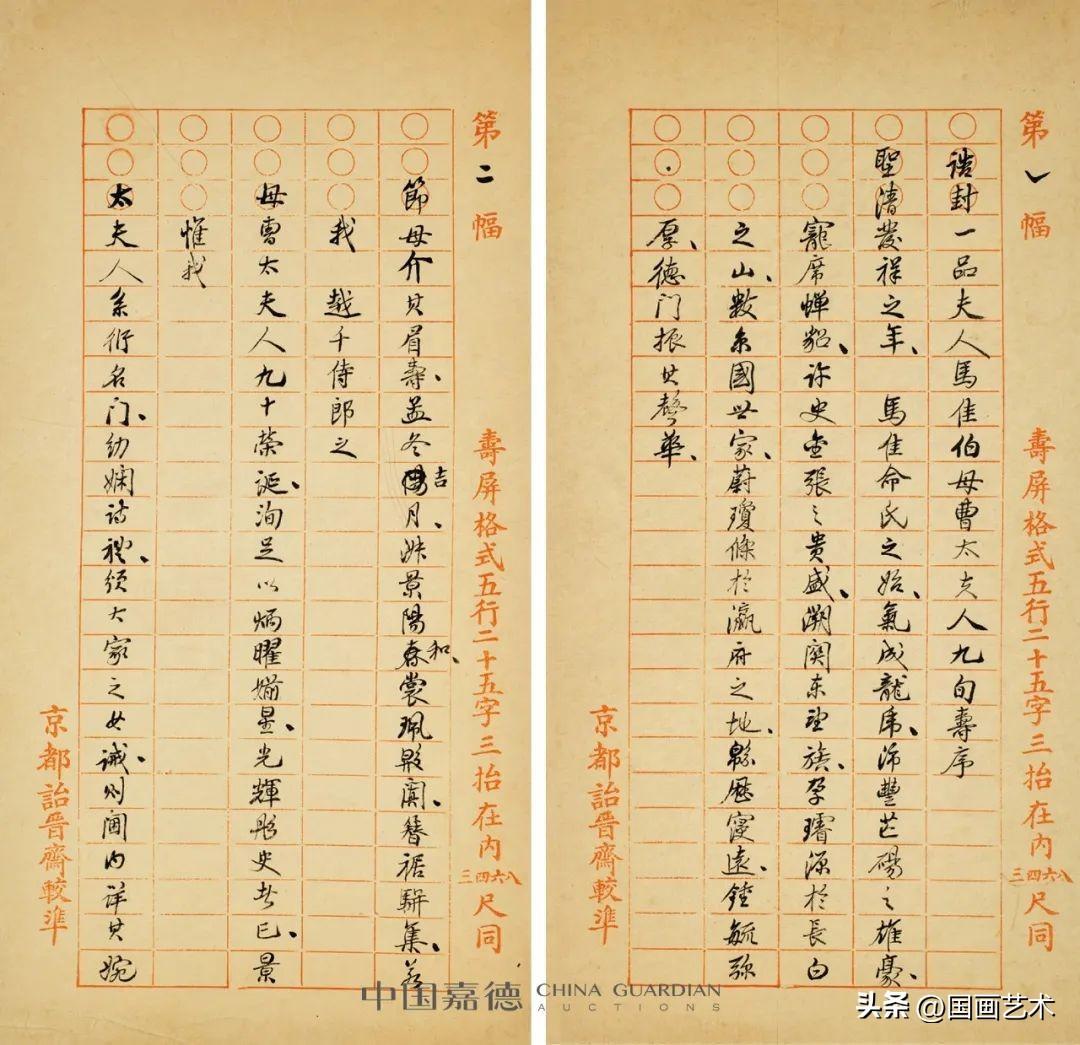 第一幅
壽屏格式五行二十五字三抬在内三四六八尺同
誥封一品夫人馬佳伯母曹太夫人九旬壽序
聖清發祥之年、馬佳命氏之始、氣成龍虎、沛豐芒碭之雄豪、
寵席蟬貂、許史金張之貴盛、溯関东望族、孕璿源於長白
之山、數京國世家、蔚瓊條於瀛府之地、緜歷寖遠、鍾毓彌
厚、德门振其聲華、
京都詒晉齋較準
第二幅
壽屏格式五行二十五字三抬在内三四六八尺同
節母介其眉壽、孟冬吉月、淑景陽和、裳珮殷闐、簪裾駢集、若
我 越千侍郎之
母曹太夫人九十榮誕、洵足以炳曜婺星、光輝彤史者已、景
惟我
太夫人系衍名门、幼嫻詩禮、須大家之女诫、则闺内详其婉
京都詒晉齋較準
中国嘉德 CHINA GUARDIAN AUCTIONS
头条 @国画艺术